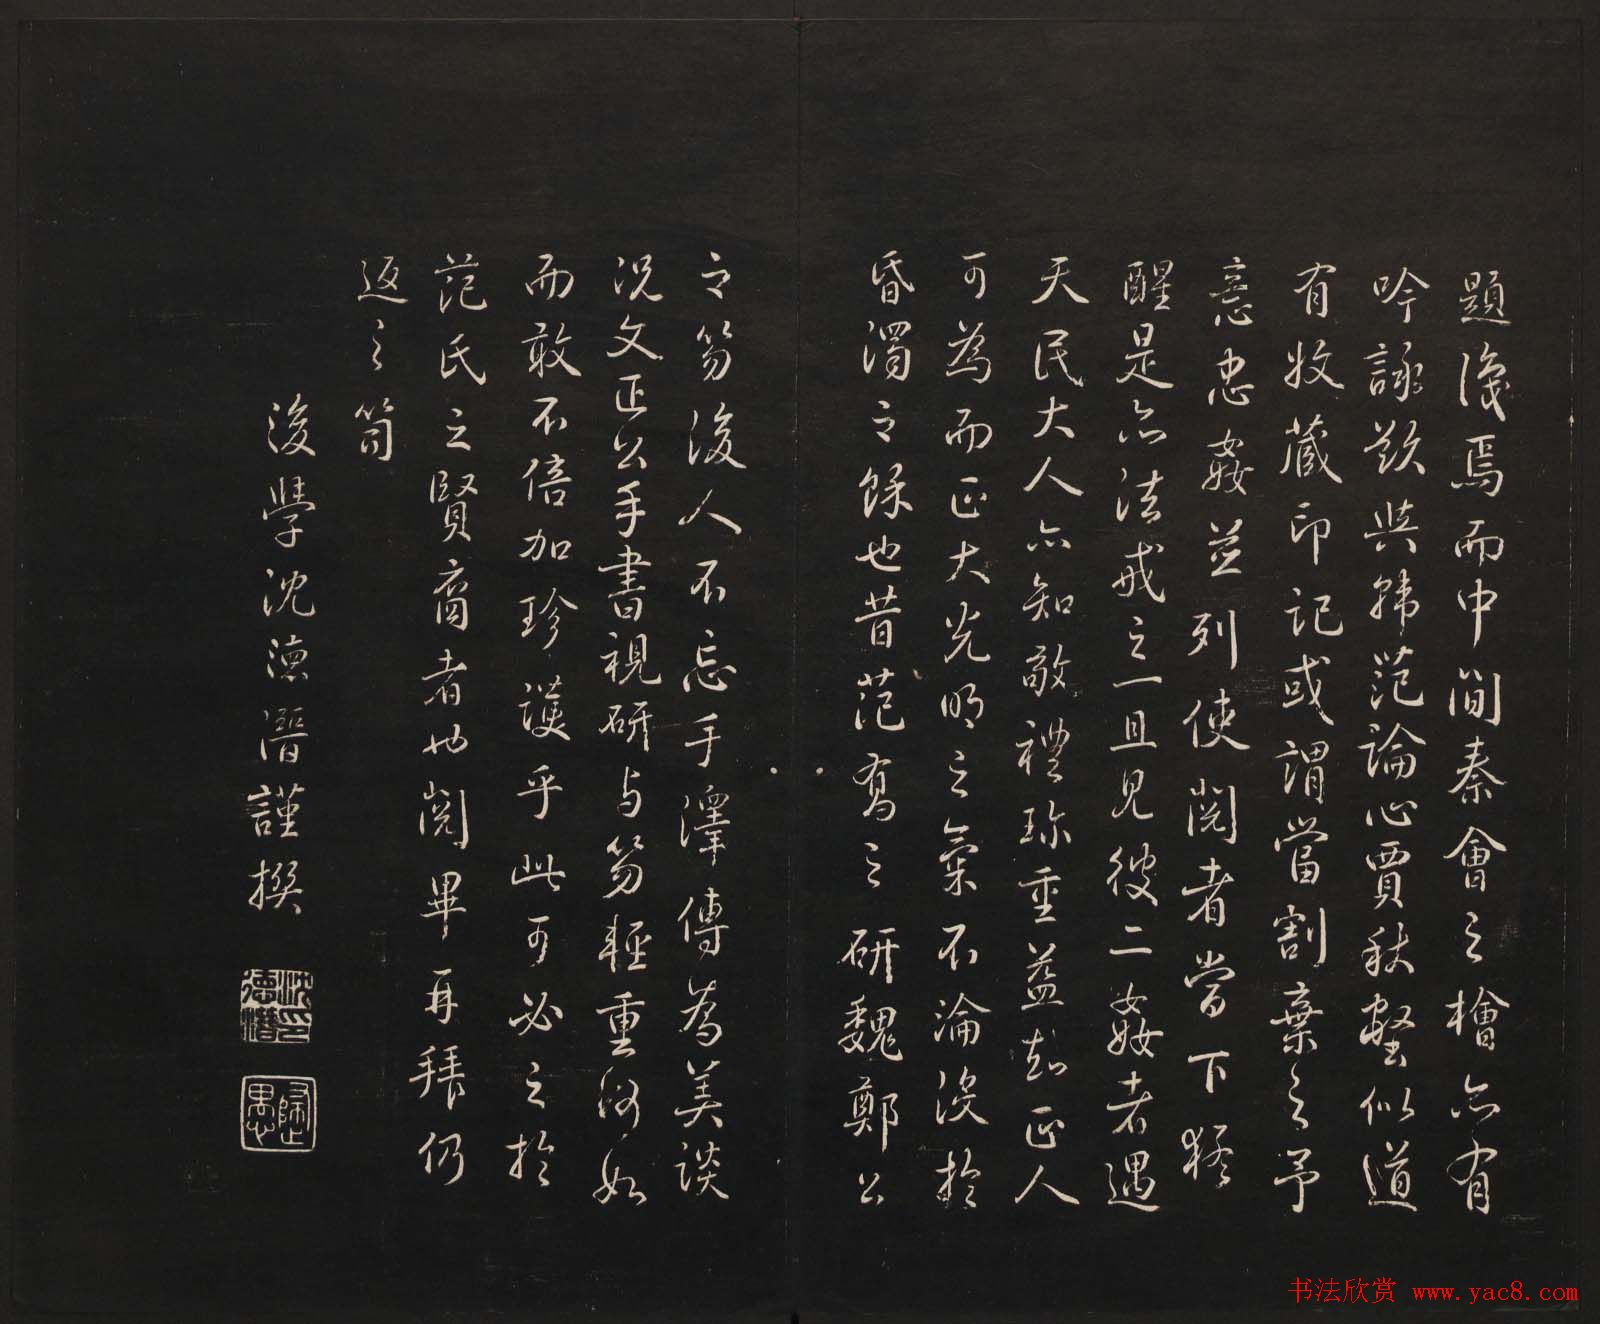 題後焉而中間秦會之檜亦有
吟詠欵與韓范論心賈秋壑似道
有收藏印記或謂當割棄之予
意忠姦並列使閱者當下猛
醒是亦法戒之一且見彼二姦者遇
天民大人亦知敬禮珍重益知正人
可為而正大光明之氣不淪沒於
昏濁之餘也昔范喬之研魏鄭公
之笏後人不忘手澤傳為美談
況文正公手書視研与笏輕重何如
而敢不倍加珍護乎此可必之於
范氏之賢裔者也閱畢再拜仍
返之笥
後學沈德潛謹撰
沈德潛印
歸愚
书法欣赏 www.yac8.com